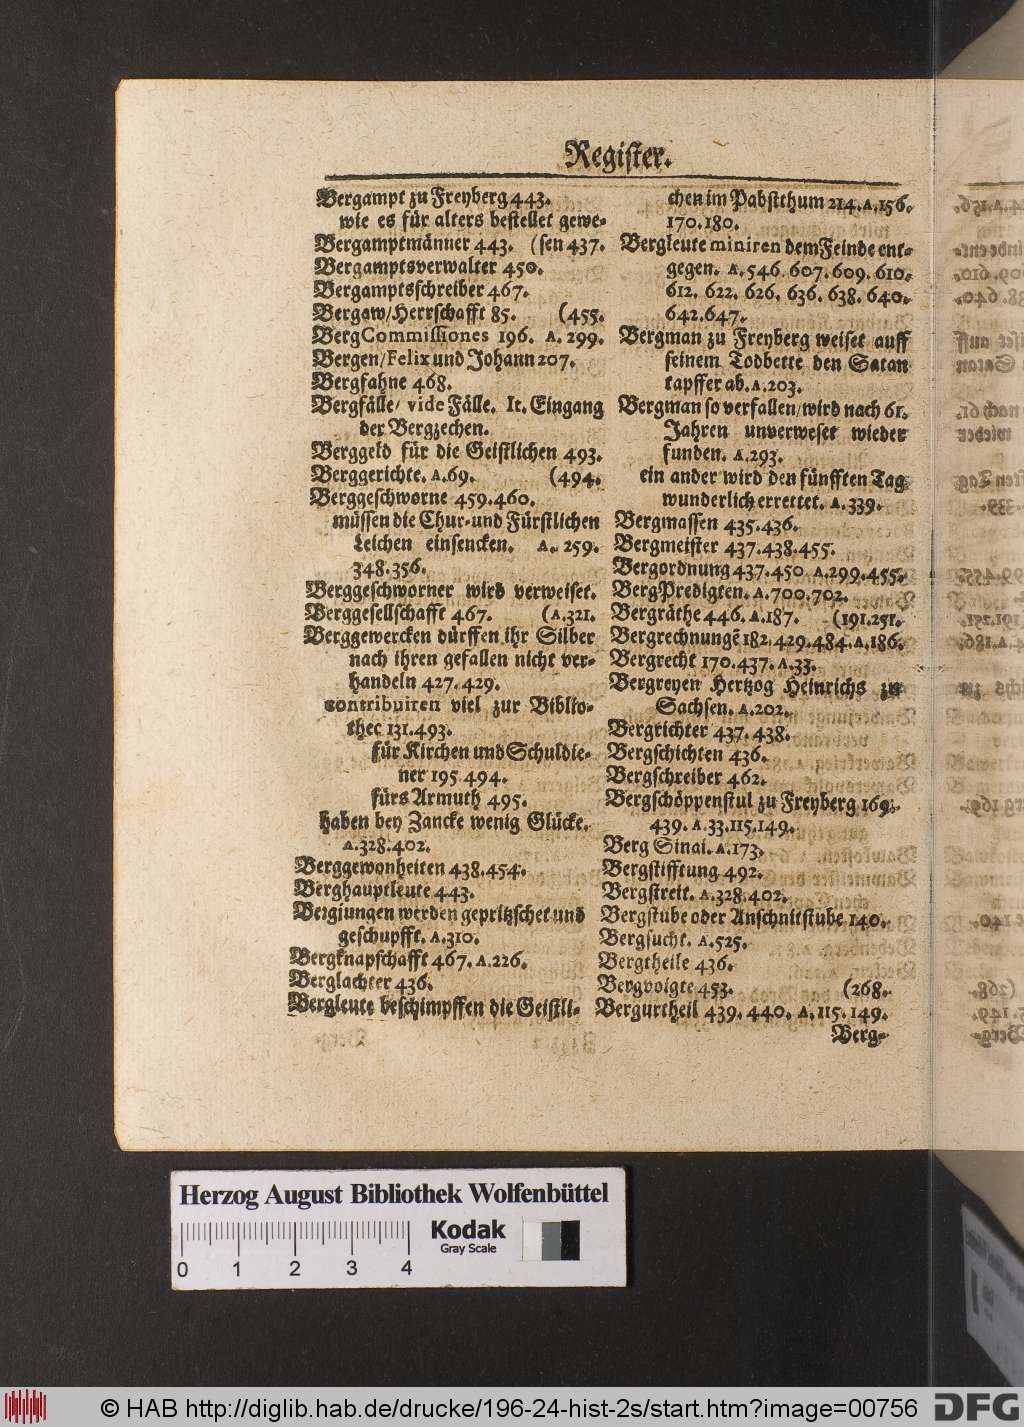 Register.
Bergampt zu Freyberg 443.
wie es für alters bestellet gewe-
Bergamptmänner 443. (sen 437.
Bergamptsverwalter 450.
Bergamptsschreiber 467.
Bergaw/Herrschafft 85. (455.
BergCommissiones 196. A. 299.
Bergen/Felix und Johann 207.
Bergfahne 468.
Bergfälle/ vide Fälle. It. Eingang
der Bergzechen.
Berggeld für die Geistlichen 493.
Berggerichte. A. 69. (494.
Berggeschworne 459.460.
müssen die Chur- und Fürstlichen
Leichen einsencken. A. 259.
348.356.
Berggeschworner wird verweiset.
Berggesellschafft 467. (A.321.
Berggewercken dürffen ihr Silber
nach ihren gefallen nicht ver-
handeln 427.429.
contribuiren viel zur Biblio-
thec 131.493.
für Kirchen und Schuldie-
ner 195 494.
fürs Armuth 495.
haben bey Zancke wenig Glücke.
A.328.402.
Berggewonheiten 438.454.
Berghauptleute 443.
Bergjungen werden gepritzschet und
geschupfft. A.310.
Bergknapschafft 467. A.226.
Berglachter 436.
Bergleute beschimpffen die Geistli-
chen im Pabstthum 214. A.156.
170.180.
Bergleute miniren dem Feinde ent-
gegen. A.546.607.609.610.
612. 622. 626. 636. 638. 640.
642.647.
Bergman zu Freyberg weiset auff
seinem Todbette den Satan
tapffer ab. A.203.
Bergman so verfallen/wird nach 61.
Jahren unverweset wieder
funden. A.293.
ein ander wird den fünfften Tag
wunderlich errettet. A.339.
Bergmassen 435.436.
Bergmeister 437.438.455.
Bergordnung 437.450 A.299.455.
BergPredigten. A.700.702.
Bergräthe 446. A.187. (191.251.
Bergrechnungẽ 182.429.484.A.186.
Bergrecht 170.437. A.33.
Bergreyen Hertzog Heinrichs zu
Sachsen. A.202.
Bergrichter 437.438.
Bergschichten 436.
Bergschreiber 462.
Bergschöppenstul zu Freyberg 169.
439. A.33.115.149.
Berg Sinai. A.173.
Bergstifftung 492.
Bergstreit. A.328.402.
Bergstube oder Anschnitstube 140.
Bergsucht. A.525.
Bergtheile 436.
Bergvoigte 453. (268.
Bergurtheil 439. 440. A. 115. 149.
Berg-
Herzog August Bibliothek Wolfenbüttel
Kodak
Gray Scale
0 1 2 3 4
© HAB http://diglib.hab.de/drucke/196-24-hist-2s/start.htm?image=00756
DFG